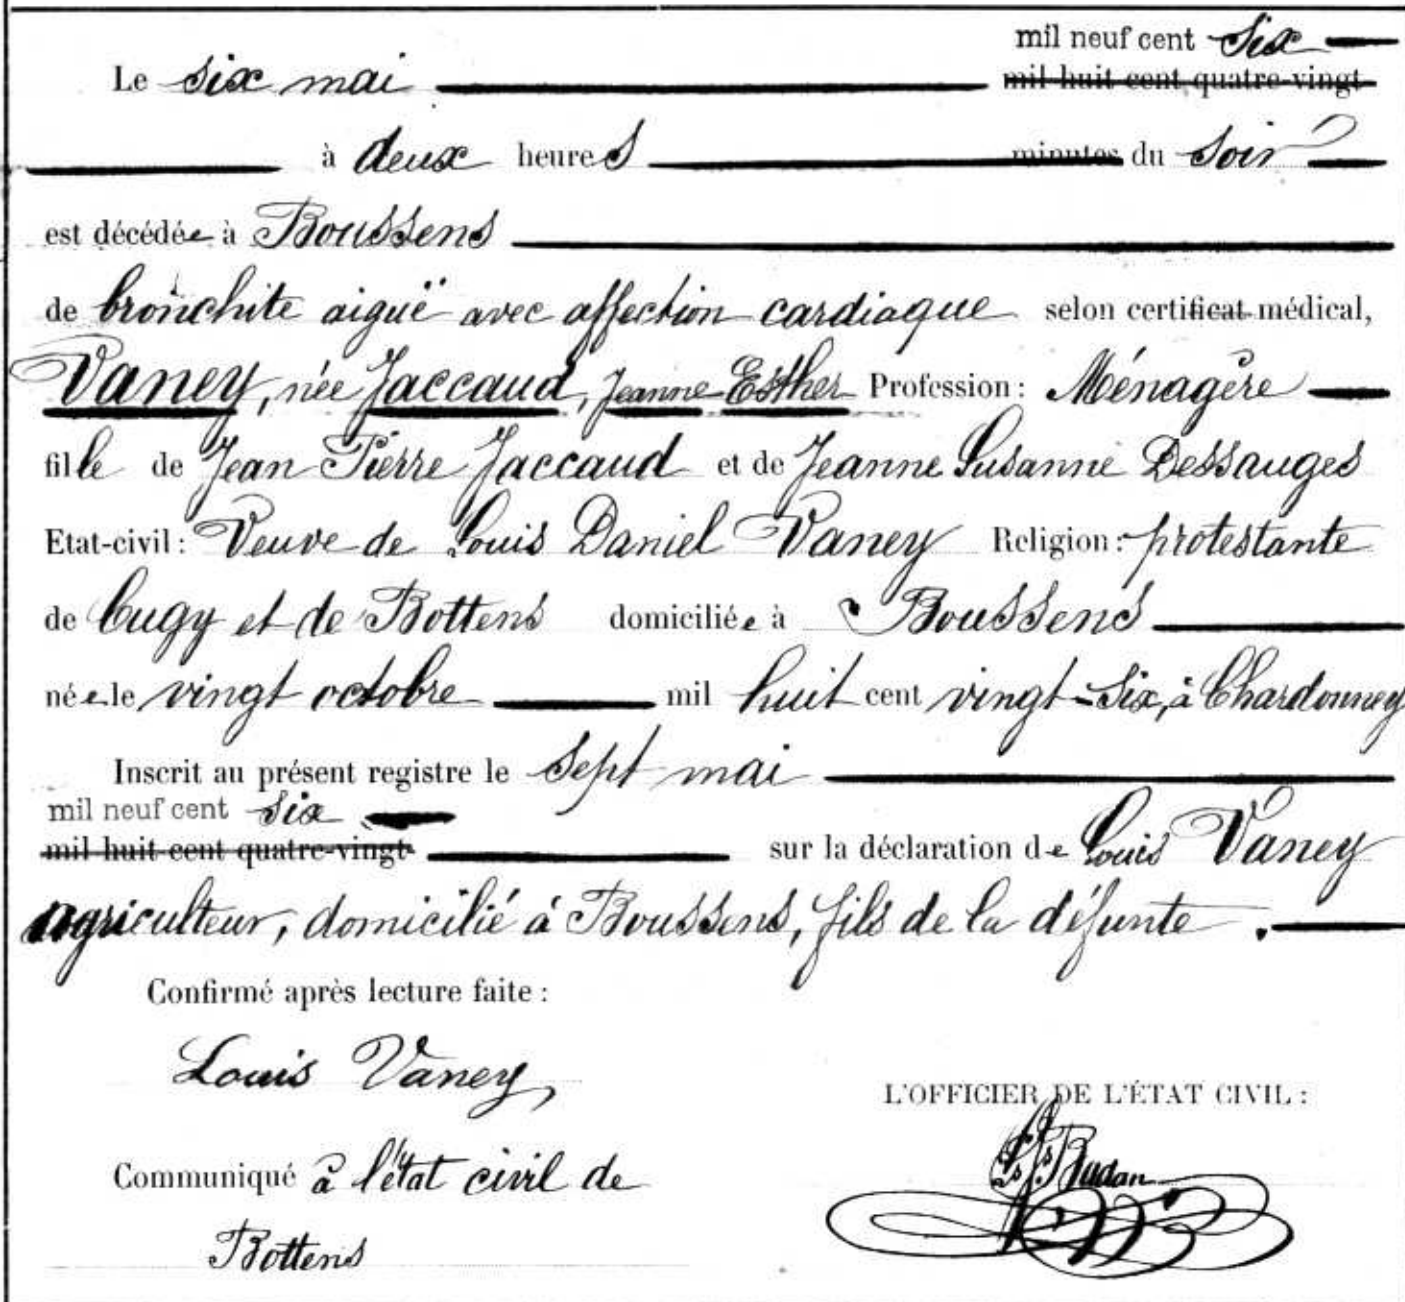 mil neuf cent six
Le six mai mil huit cent quatre-vingt
à deux heures minutes du soir
est décédée à Boussens
de bronchite aiguë avec affection cardiaque selon certificat médical,
Vaney, née Jaccaud, Jeanne Esther Profession : Ménagère
fille de Jean Pierre Jaccaud et de Jeanne Susanne Dessauges
Etat-civil : Veuve de Louis Daniel Vaney Religion : protestante
de Cugy et de Bottens domiciliée à Boussens
née le vingt octobre mil huit cent vingt-six, à Chardonney
Inscrit au présent registre le sept mai
mil neuf cent six
mil huit cent quatre-vingt sur la déclaration de Louis Vaney
agriculteur, domicilié à Boussens, fils de la défunte.
Confirmé après lecture faite :
Louis Vaney
L'OFFICIER DE L'ÉTAT CIVIL :
Communiqué à l'état civil de
Bottens